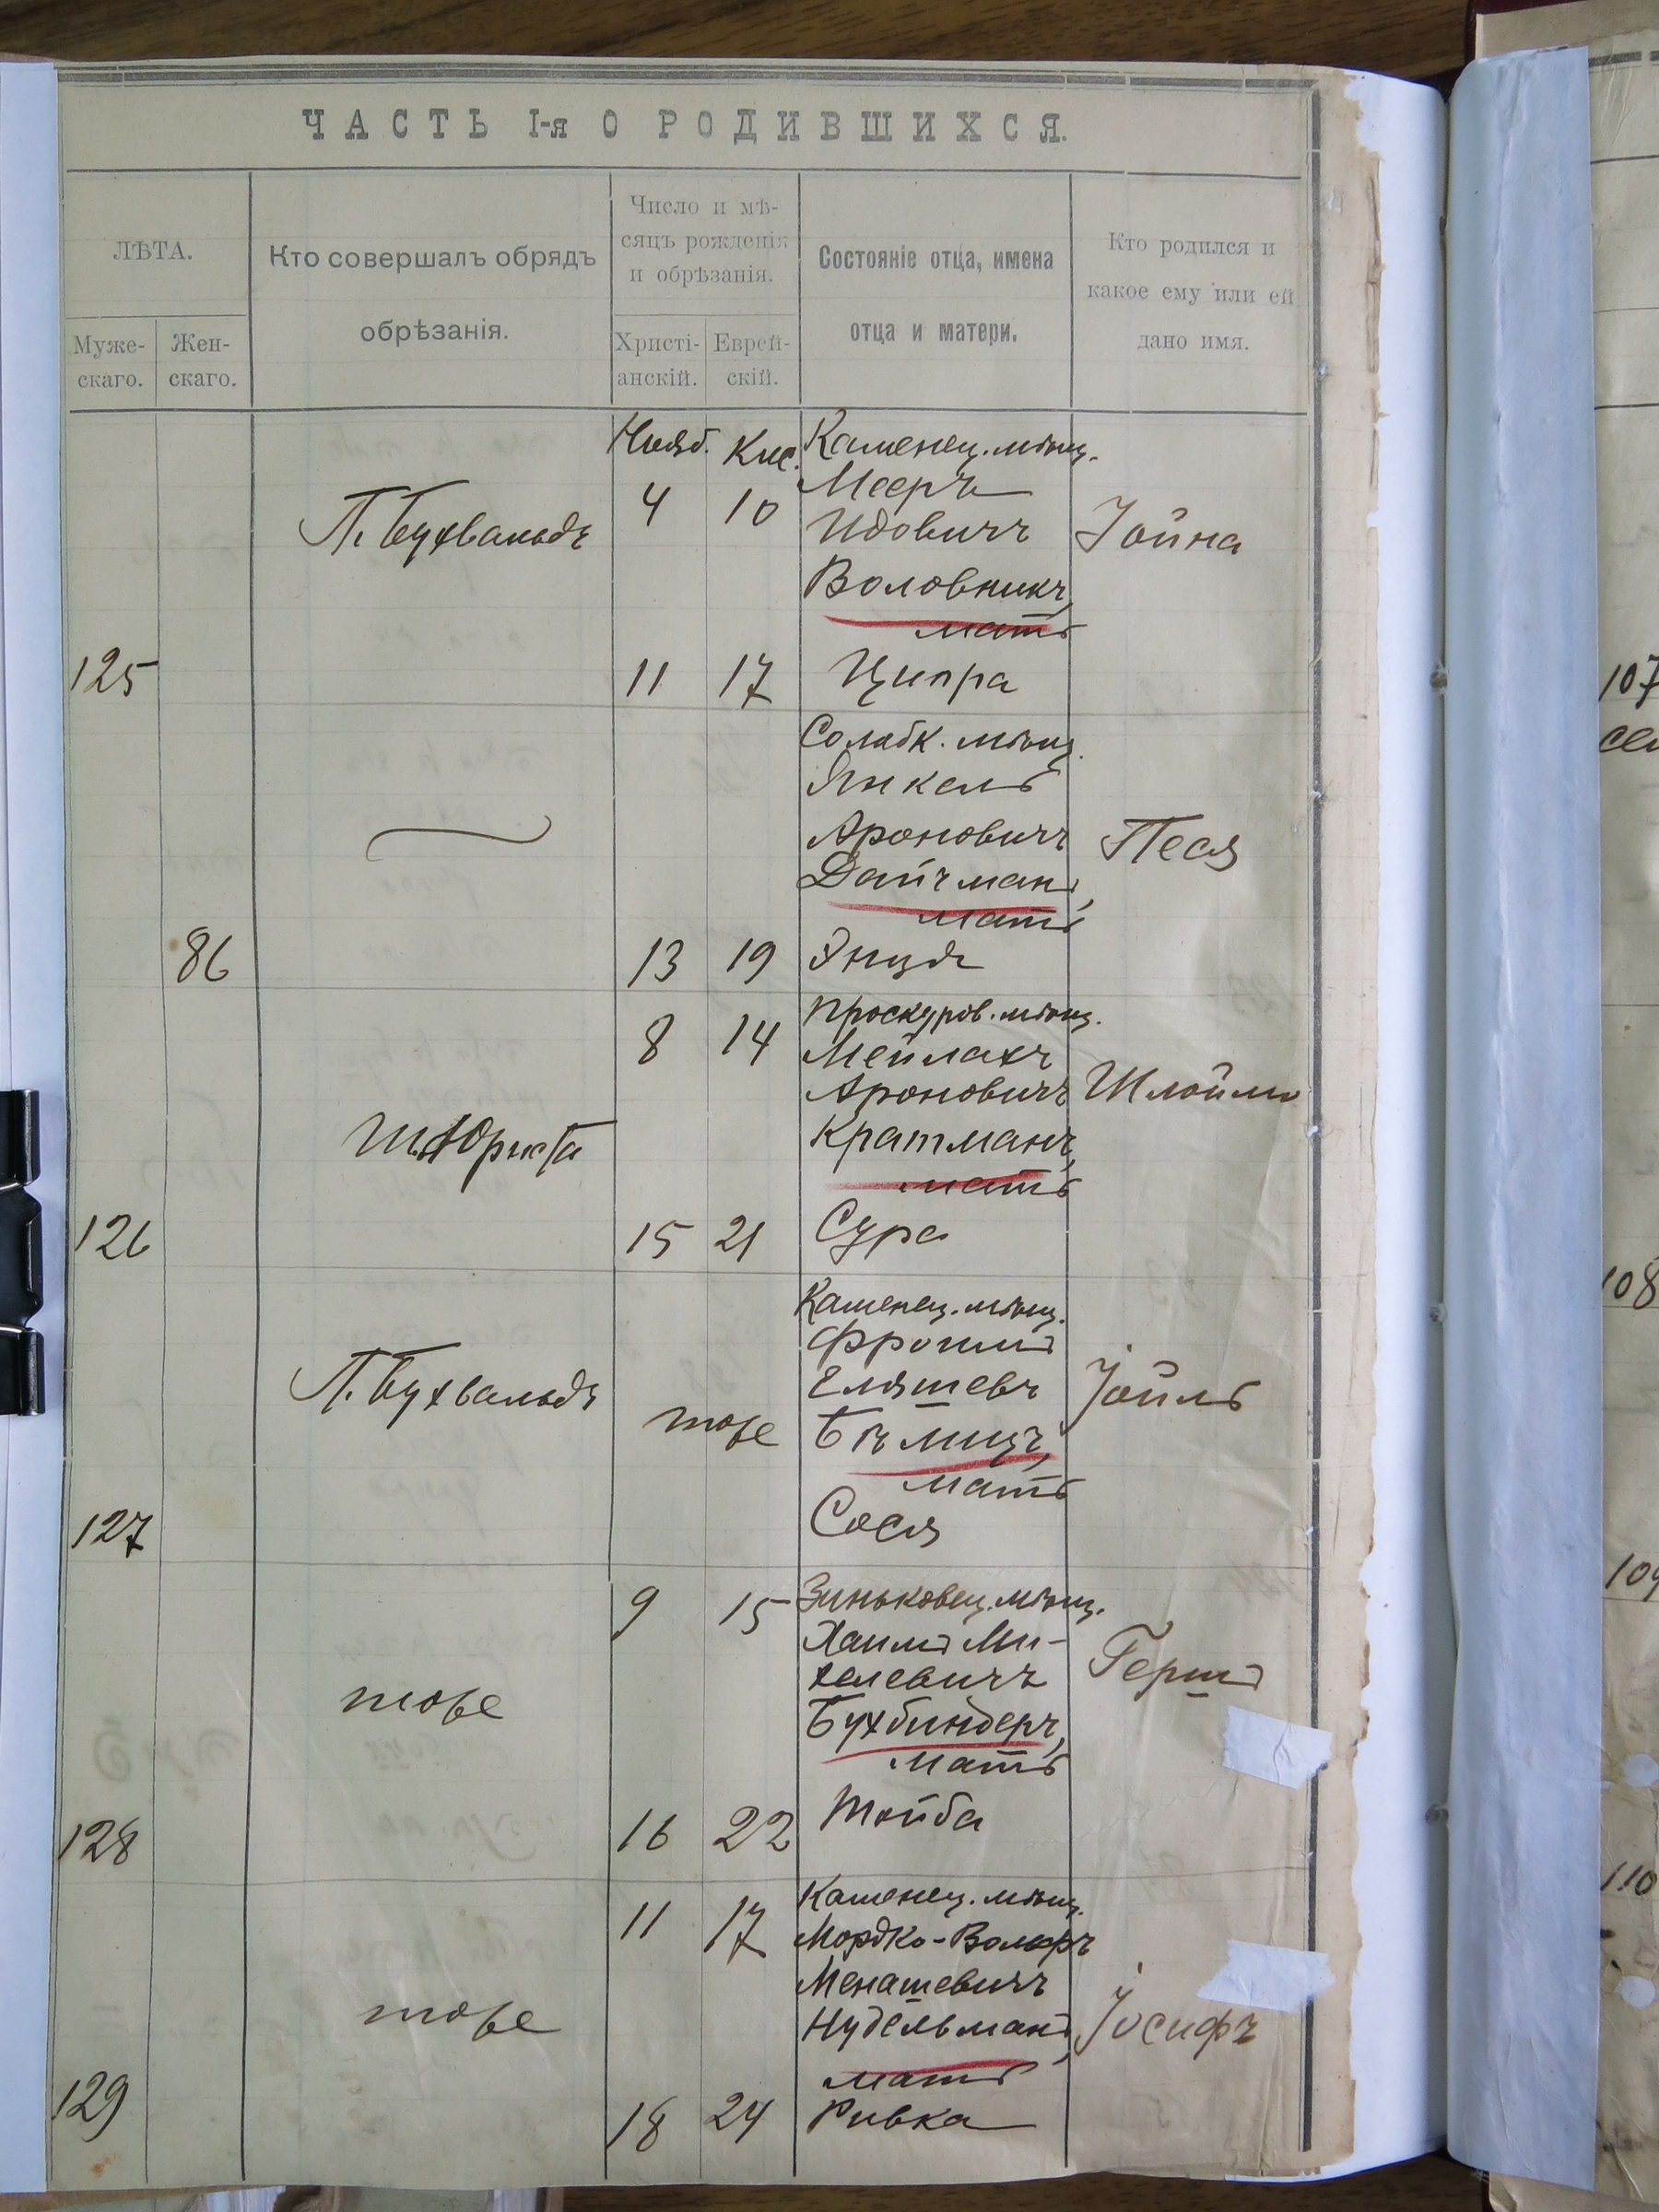 ЧАСТЬ I-я О РОДИВШИХСЯ.
ЛѢТА.
Муже-
скаго.
Жен-
скаго.
Кто совершалъ обрядъ
обрѣзанія.
Число и мѣ-
сяцъ рожденія
и обрѣзанія.
Христі-
анскій.
Еврей-
скій.
Состояніе отца, имена
отца и матери.
Кто родился и
какое ему или ей
дано имя.
Нояб. Кис. Каменец. мѣщ.
Мееръ
4 10
П. Бухвальдъ Идовичъ Іойна
Воловникъ,
мать
125 11 17 Ципра
Солобк. мѣщ.
Янкель
Ароновичъ Песя
Дайчманъ,
мать
86 13 19 Энця
Проскуров. мѣщ.
8 14 Мейлахъ
Ароновичъ Шлойма
Ш. Юриста Кратманъ,
мать
126 15 21 Сура
Каменец. мѣщ.
Фроимъ
П. Бухвальдъ Еляшевъ Іойль
тоже Бѣлицъ,
мать
127 Сося
9 15 Зиньковец. мѣщ.
Хаимъ Ми-
хелевичъ Гершъ
тоже Бухбиндеръ,
мать
128 16 22 Тойба
11 17 Каменец. мѣщ.
Мордко-Вольфъ
Менашевичъ
тоже Нудельманъ, Іосифъ
мать
129 18 24 Ривка
107
108
109
110